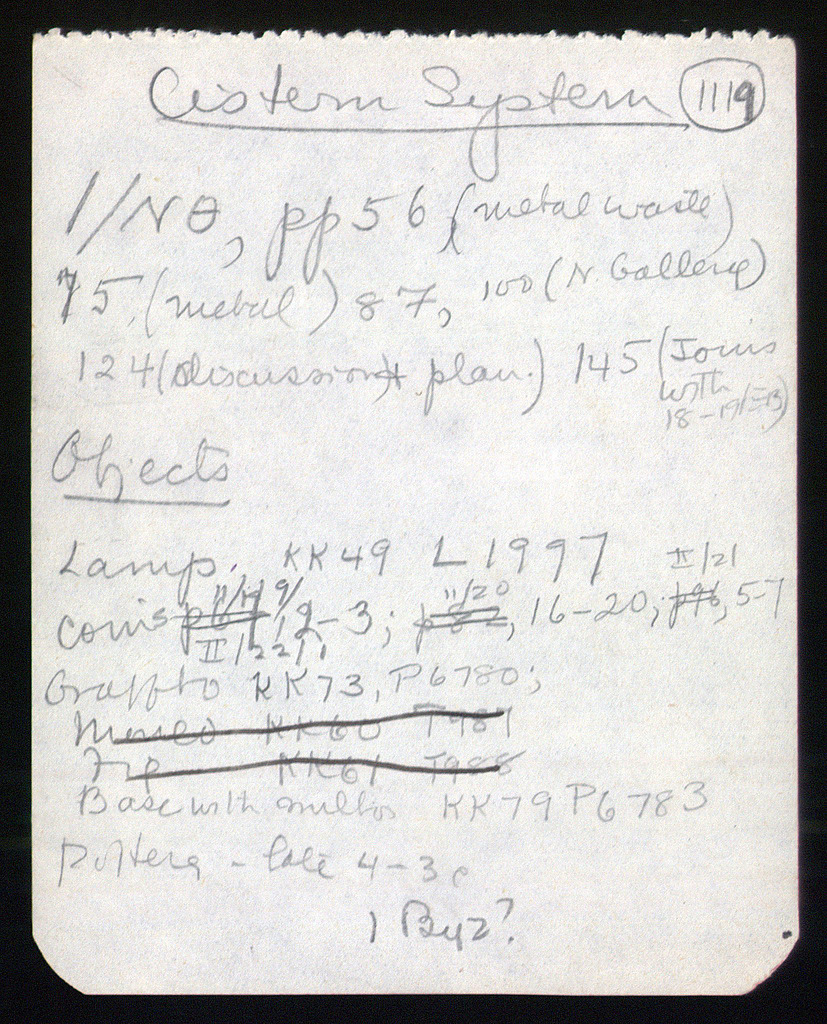 Cistern System 1119
1/NΘ, pp 56 (metal waste)
75, (metal) 87, 100 (N Gallery)
124 (discussion + plan) 145 (Joins
with
18-19/
Objects
Lamp. KK49 L1997 II/21
11/20
coins 2-3; p82, 16-20; p96, 5-7
II/22
Graffito KK73, P6780;
KK60 T987
Fig KK61 T988
Base with KK79 P6783
Pottery - late 4-3c
1 Byz?